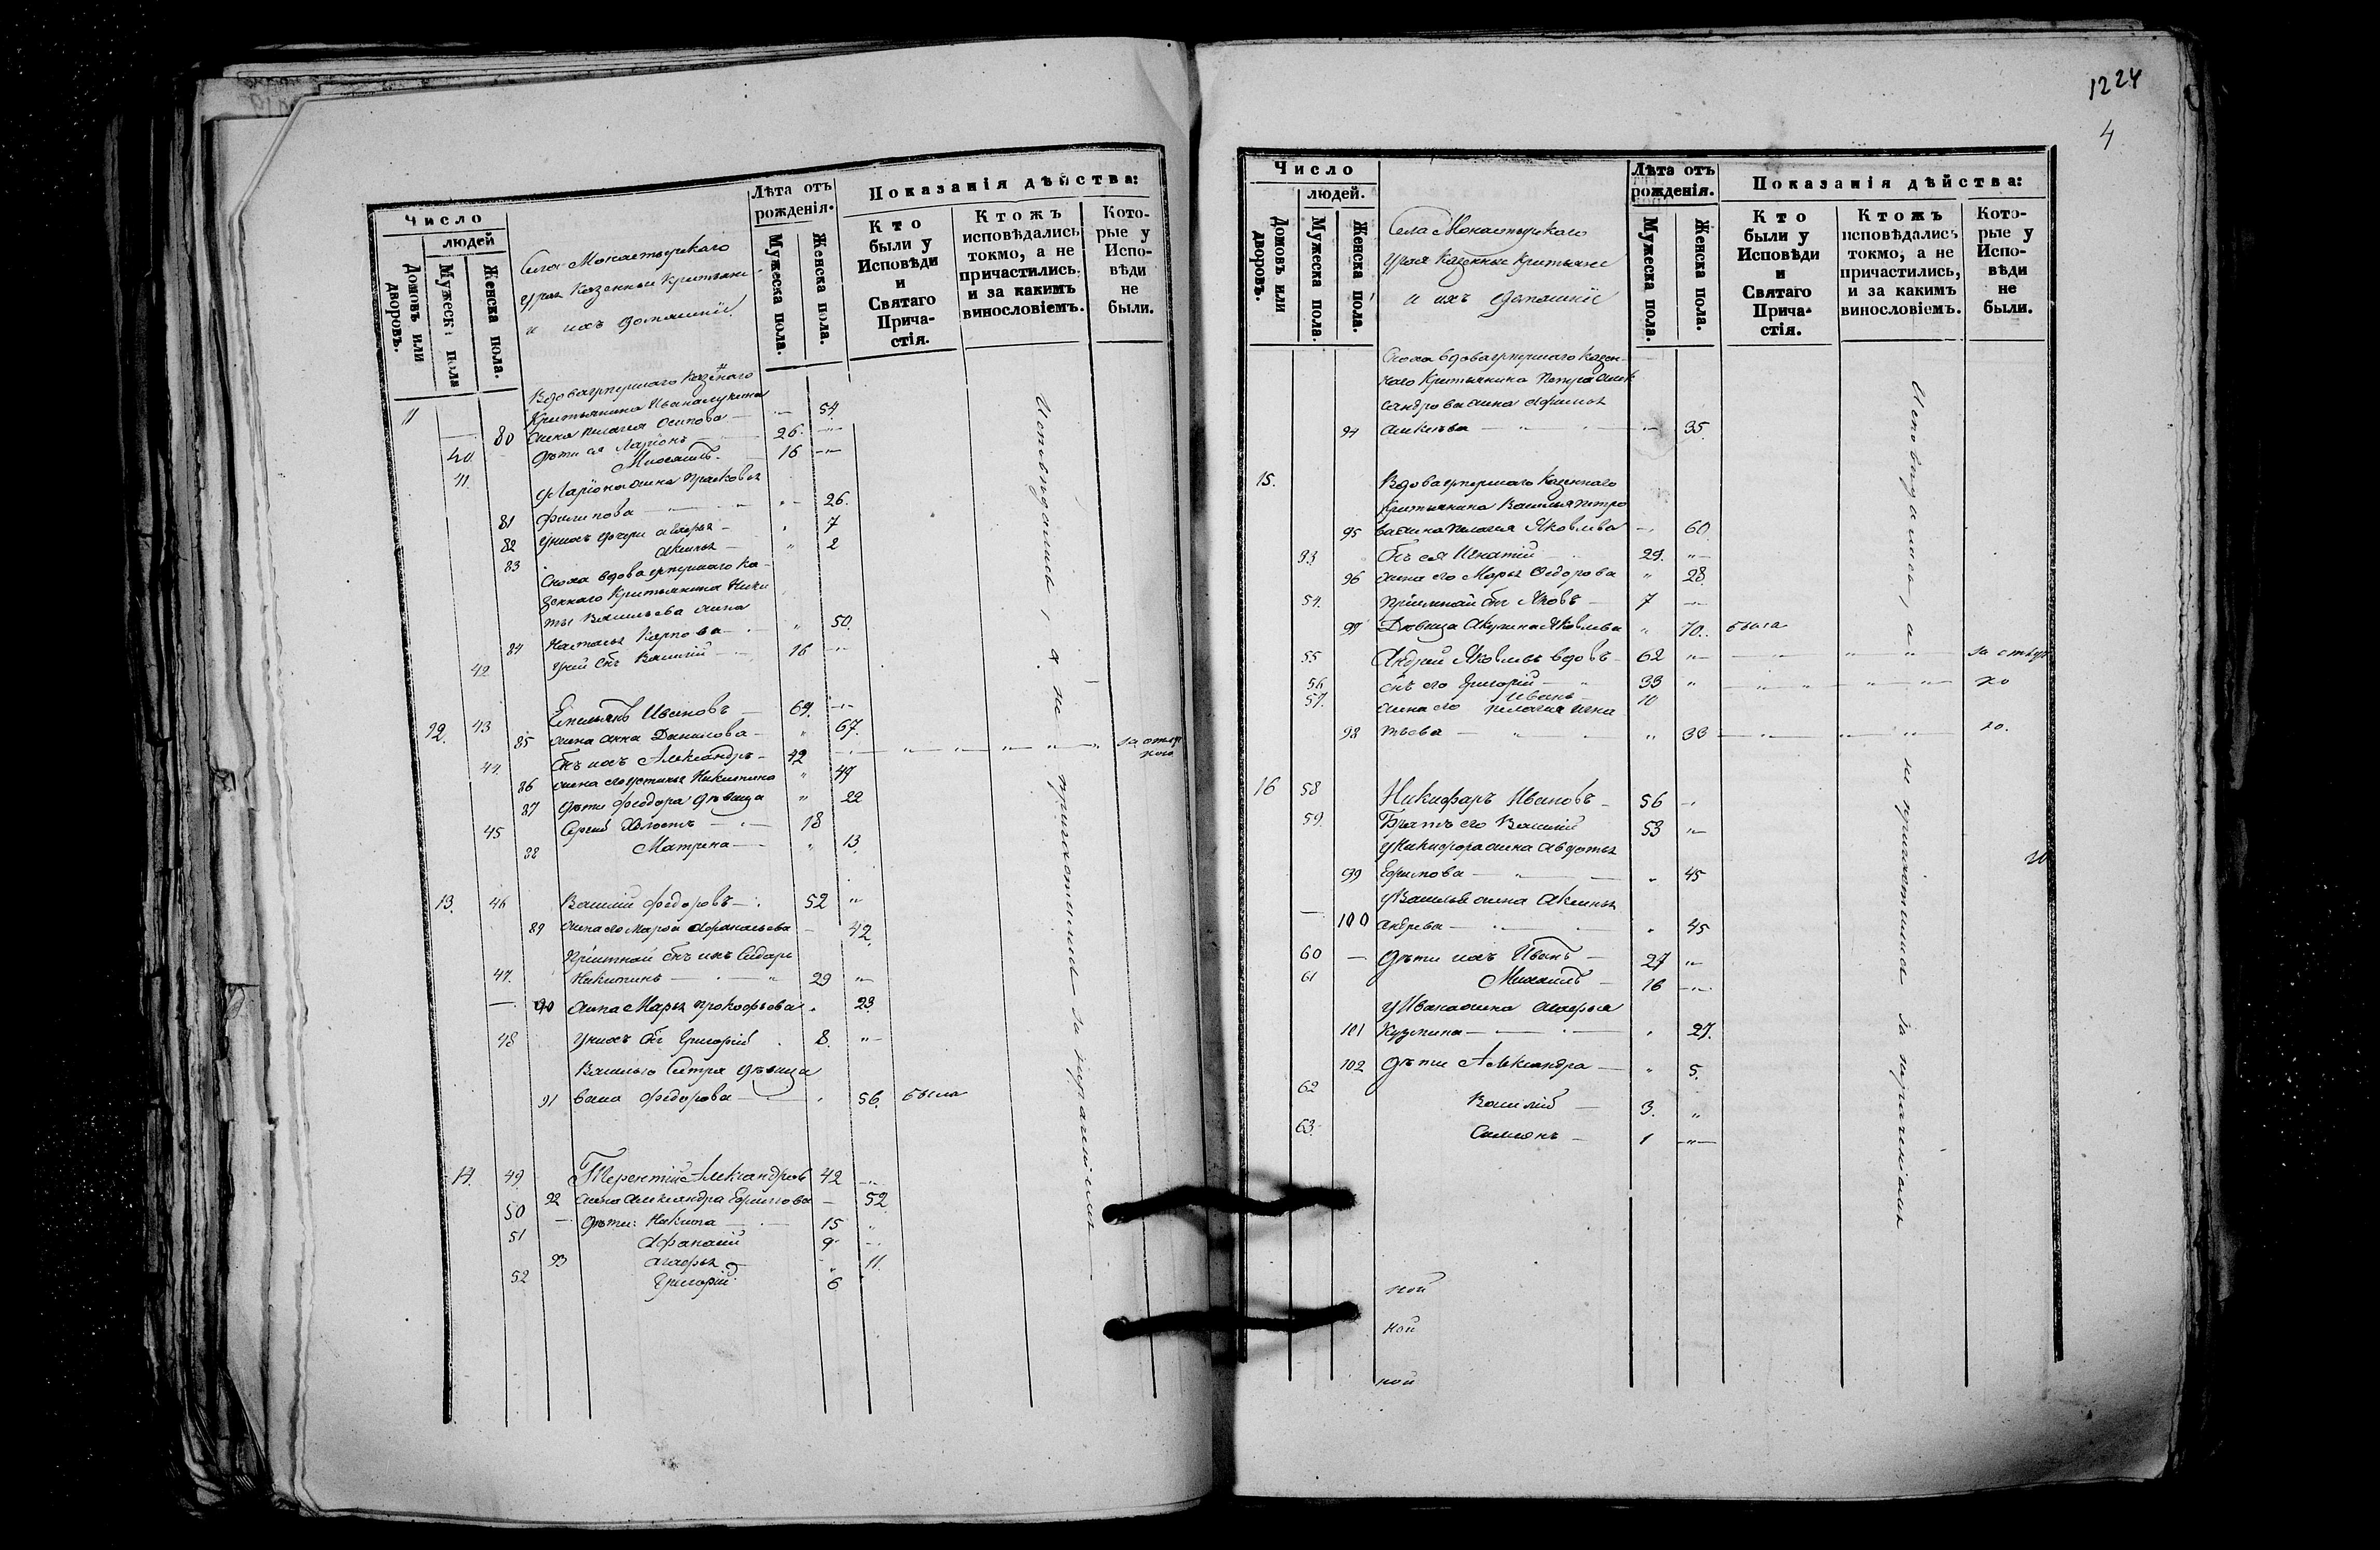 Число
людей
Домовъ или дворовъ.
Мужеск: пола
Женска пола.
Села Монастырскаго
Урая Казенные Крестьяне
и ихъ домашнiе.
Лѣта отъ рожденiя.
Мужеска пола.
Женска пола.
Показанiя дѣйства:
Кто были у Исповѣди и Святаго Причастiя.
Ктожъ исповѣдались токмо, а не причастились, и за какимъ винословiемъ.
Которые у Исповѣди не были.
Вдова умершаго казеннаго
11 Крестьянина Ивана
80 жена Пелагея Осипова — 54.
40. дѣти ея Ларiонъ — 26.
41. Михаилъ. 16
У Ларiона жена Прасковья
81 Филипова — 26.
82 У нихъ дочери Агафья — 7
83 Аксинья — 2
Сноха вдова умершаго Ка-
зеннаго Крестьянина Ники
ты Васильева жена
84 Наталья Карпова — 50.
42 У ней сынъ Василiй — 16
12. 43 Емельянъ Ивановъ — 69.
85 жена Анна Данилова — 67.
44. Сынъ ихъ Александръ — 42 за отлуч
кою
86 жена его Устинья Никитина 47
87 Дѣти Феодора дѣвица 22
45 Сергѣй Холостъ — 18
88 Матрена — 13.
13. 46 Василiй Федоровъ — 52
89 жена его Марфа Афанасьева — 42.
Прiемной сынъ ихъ Сидоръ
47. Никитинъ — 29
90 жена Марья Прокофьева 23.
48 У нихъ сынъ Григорiй 8.
Василью Сестра дѣвица
91 Федорова — 56. была
14. 49 Терентiй Александровъ 42
92 жена Александра Ефимова — 52
50 Дѣти: Никита — 15
51 Афанасiй 9
93 Агафья 11.
52 Григорiй 6
Исповѣдались, а не причастились за нераченiемъ
1224
4
Число
людей.
Домовъ или дворовъ.
Мужеска пола
Женска пола.
Села Монастырскаго
Урая Казенные Крестьяне
и ихъ домашнiе
Лѣта отъ рожденiя.
Мужеска пола.
Женска пола.
Показанiя дѣйства:
Кто были у Исповѣди и Святаго Причастiя.
Ктожъ исповѣдались токмо, а не причастились, и за какимъ винословiемъ.
Которые у Исповѣди не были.
Сноха вдова умершаго Казен-
наго Крестьянина Петра Алек
сандрова жена Афимья
94 Аникѣева — 35.
15. Вдова умершаго Казеннаго
Крестьянина Василья Петро
95 ва жена Пелагея Яковлева — 60.
53 Сынъ ея Игнатiй 29.
96 жена его Марья Федорова 28.
54. Прiемной сынъ Яковъ — 7
97 Дѣвица Акулина Яковлева 70. была
55 Андрей Яковлевъ вдовъ — 62 за отлуч
56 сынъ его Григорiй — 33 кою
57. Иванъ — 10
жена его Пелагея Игна
98 тьева — 33
16 58 Никифоръ Ивановъ — 56
59. Братъ его Василiй 53
У Никифора жена Авдотья
99 Ефимова — 45
У Василья жена Аксинья
100 Андреева — 45
60 Дѣти ихъ Иванъ — 27
61 Михаилъ — 16
У Ивана жена Агафья
101 Кузмина — 27.
102 Дѣти Александра — 5.
62 Василiй — 3.
63. Симеонъ — 1
Исповѣдались, а не причастились за нераченiемъ
ной
ной
ной